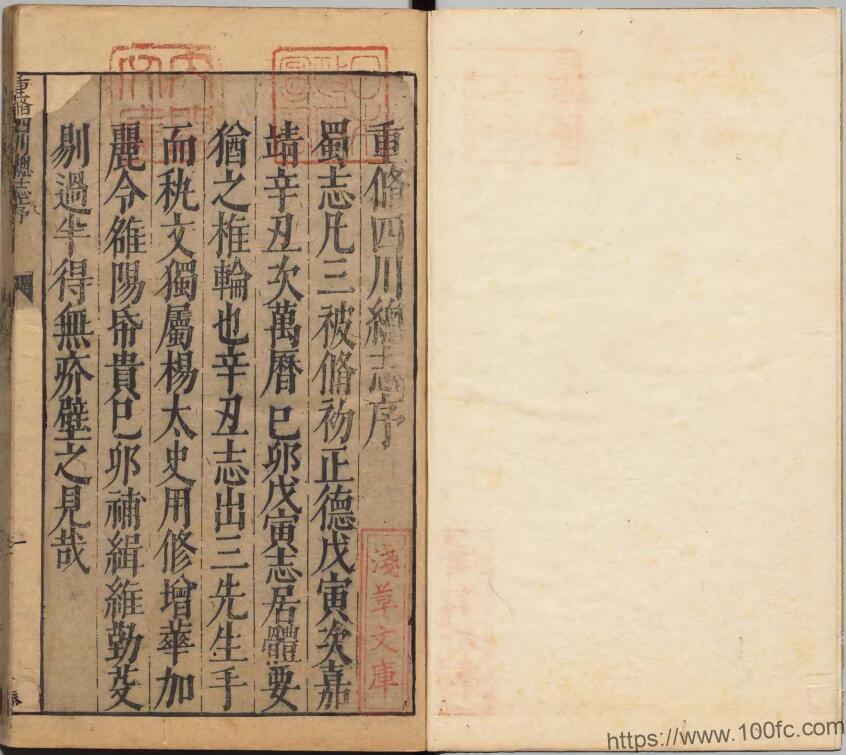 重脩四川總志序
蜀志凡三被脩初正德戊寅次嘉
靖辛丑次萬曆己卯戊寅志居體要
猶之椎輪也辛丑志出三先生手
而秇文獨屬楊太史用修增華加
麗令雒陽帋貴己卯補緝維勤芟
剔過半得無疥壁之見哉
重脩四川總志序
一
淺草文庫
https://www.100fc.com